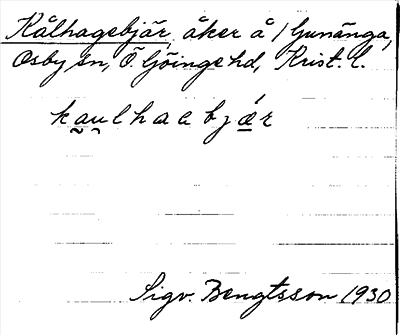 Kålhagebjär, åker å 1 Gunänga,
Osby sn, Ö. Göinge hd, Krist. l.
kau̯lhaabjǽr
Sigv. Bengtsson 1930